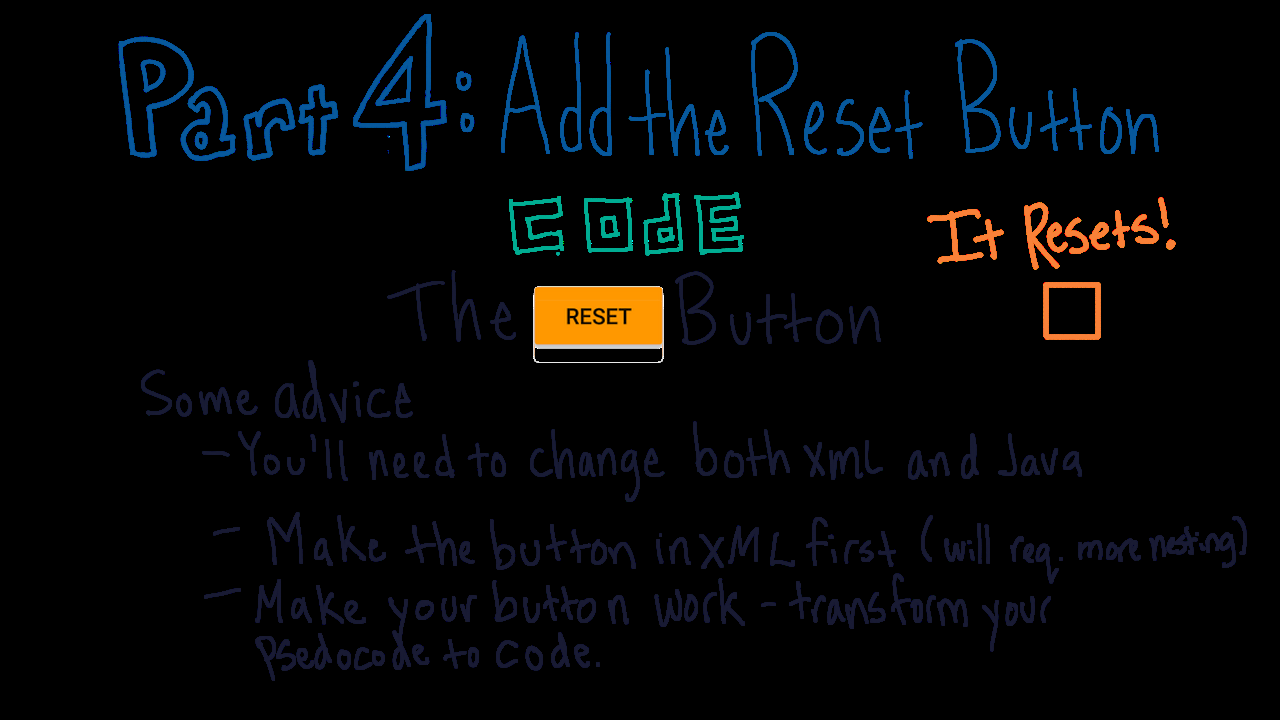 Part 4: Add the Reset Button
CODE
It Resets!
The RESET Button
Some advice
- You'll need to change both XML and Java
- Make the button in XML first (will req. more nesting)
- Make your button work - transform your
Psedocode to code.